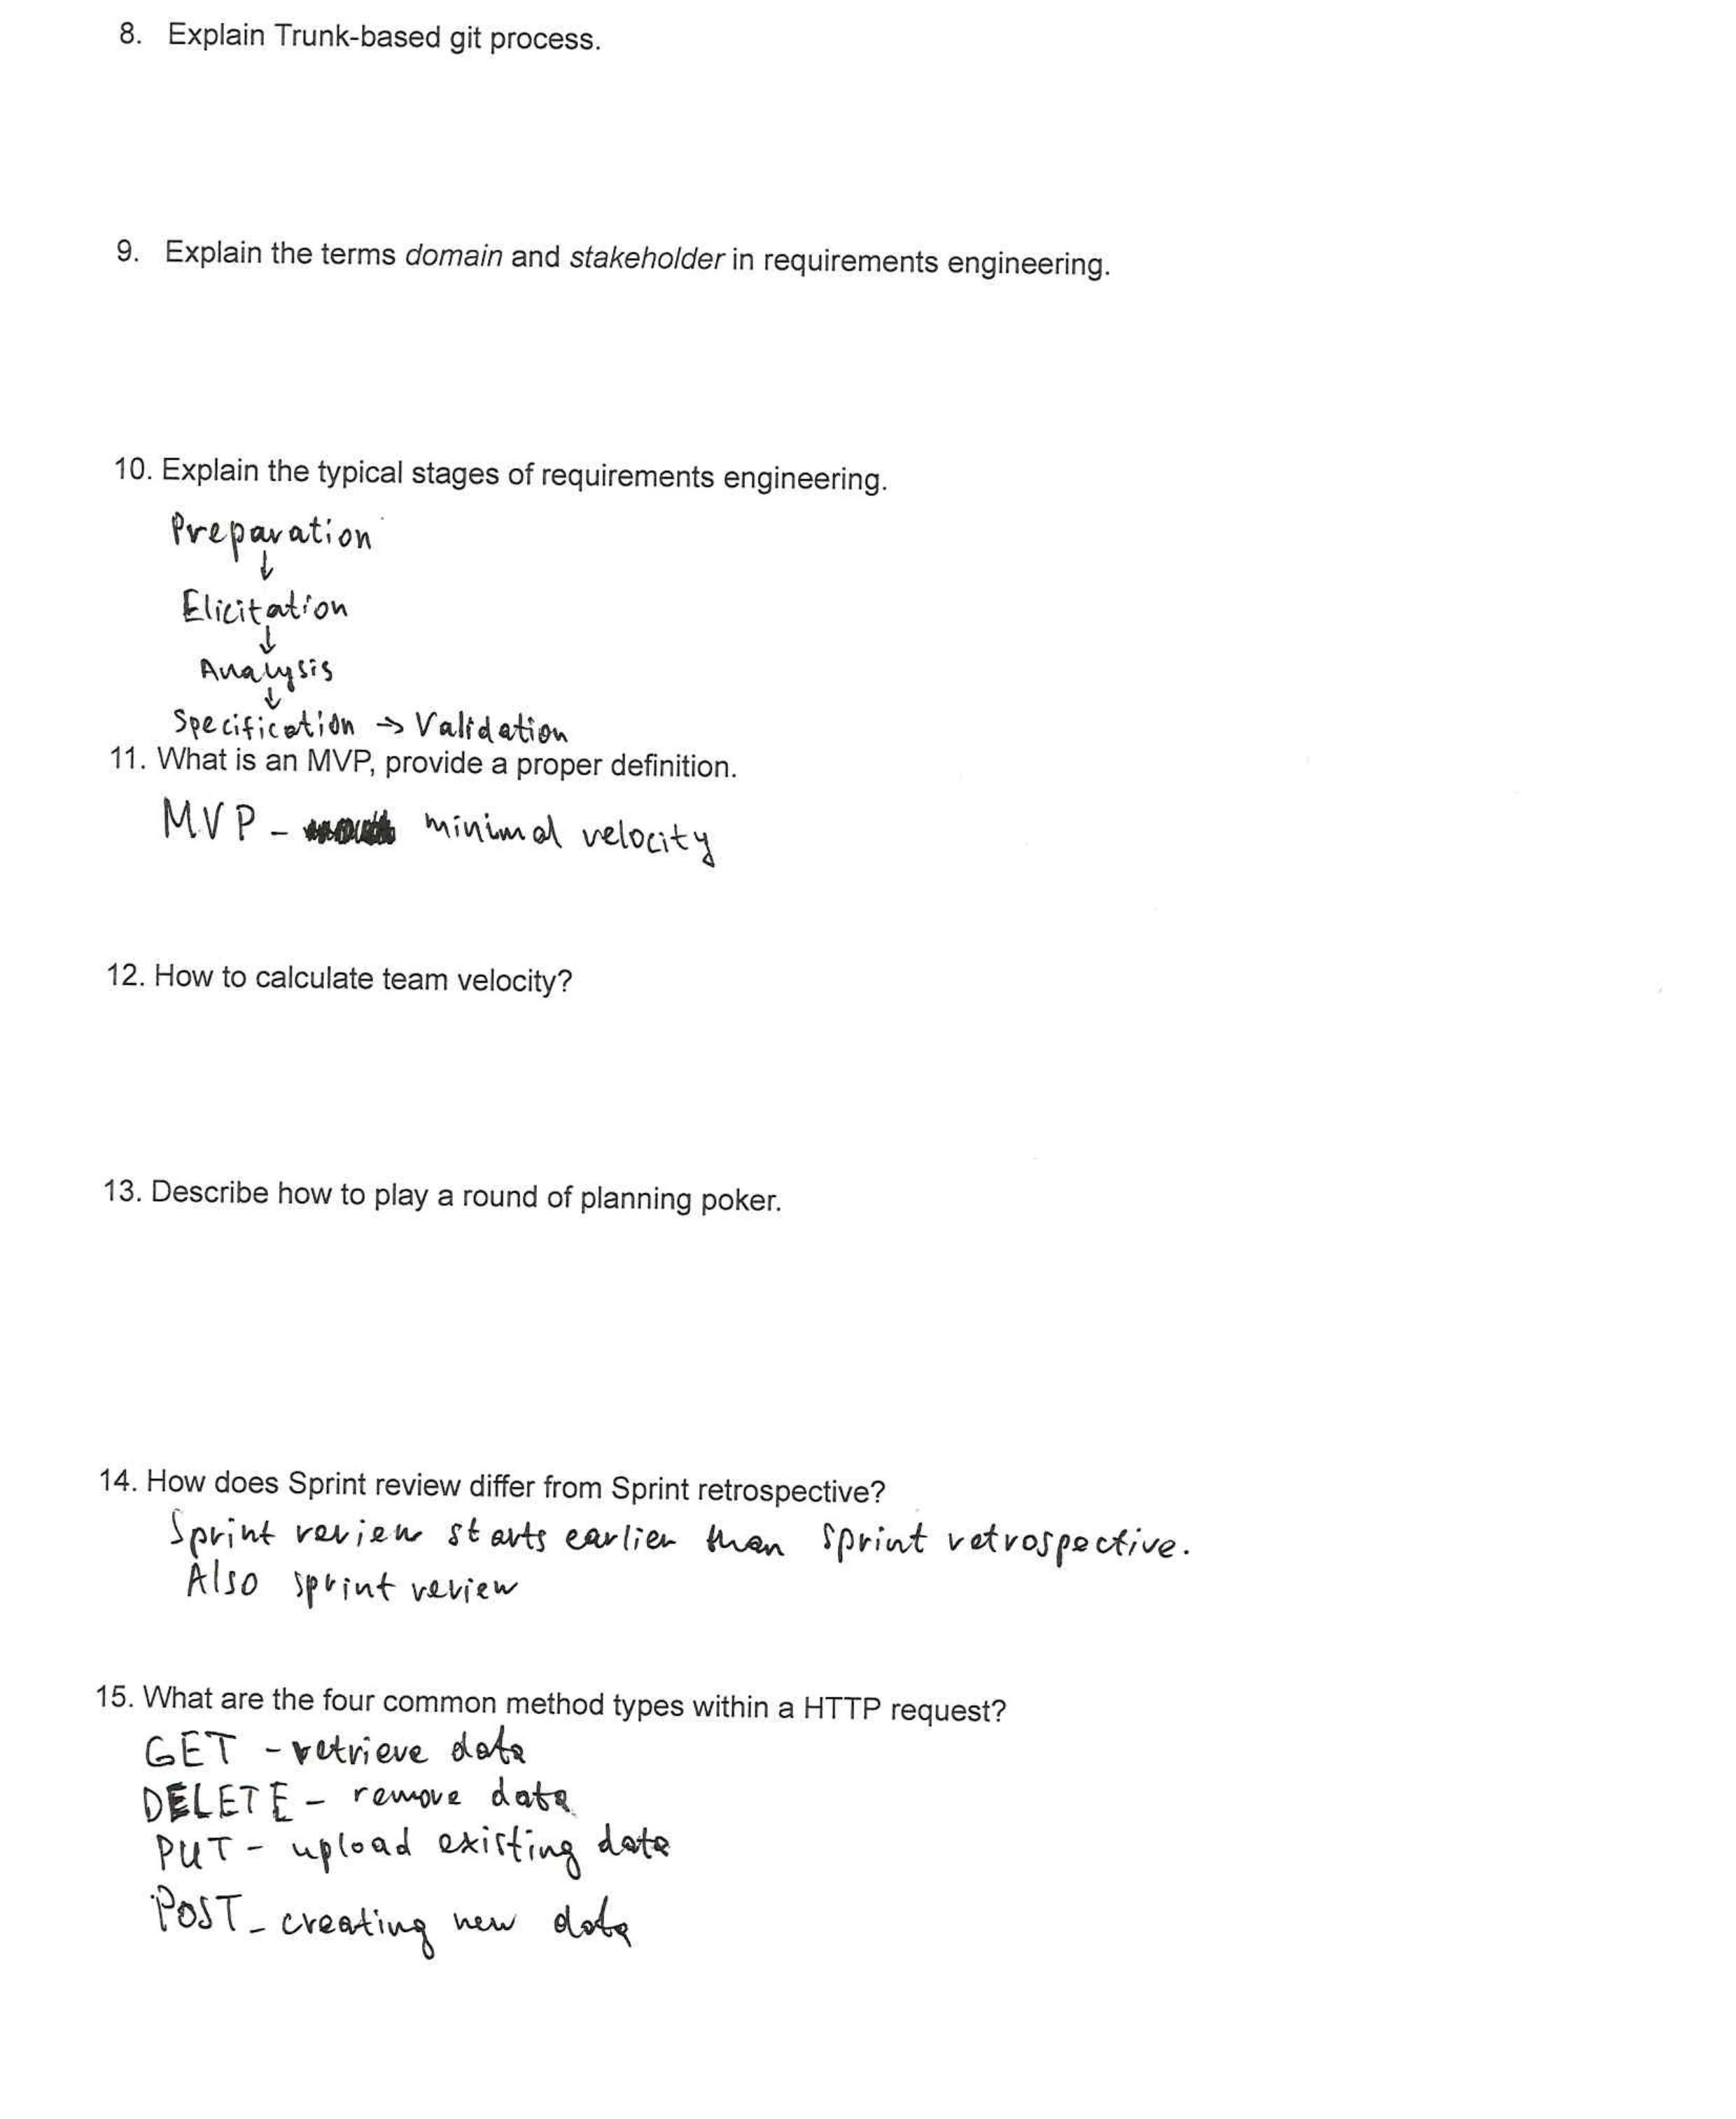 8. Explain Trunk-based git process.
9. Explain the terms domain and stakeholder in requirements engineering.
10. Explain the typical stages of requirements engineering.
Preparation
↓
Elicitation
↓
Analysis
↓
Specification → Validation
11. What is an MVP, provide a proper definition.
MVP - minimal velocity
12. How to calculate team velocity?
13. Describe how to play a round of planning poker.
14. How does Sprint review differ from Sprint retrospective?
Sprint review starts earlier than sprint retrospective.
Also sprint review
15. What are the four common method types within a HTTP request?
GET - retrieve data
DELETE - remove data
PUT - upload existing data
POST - creating new data